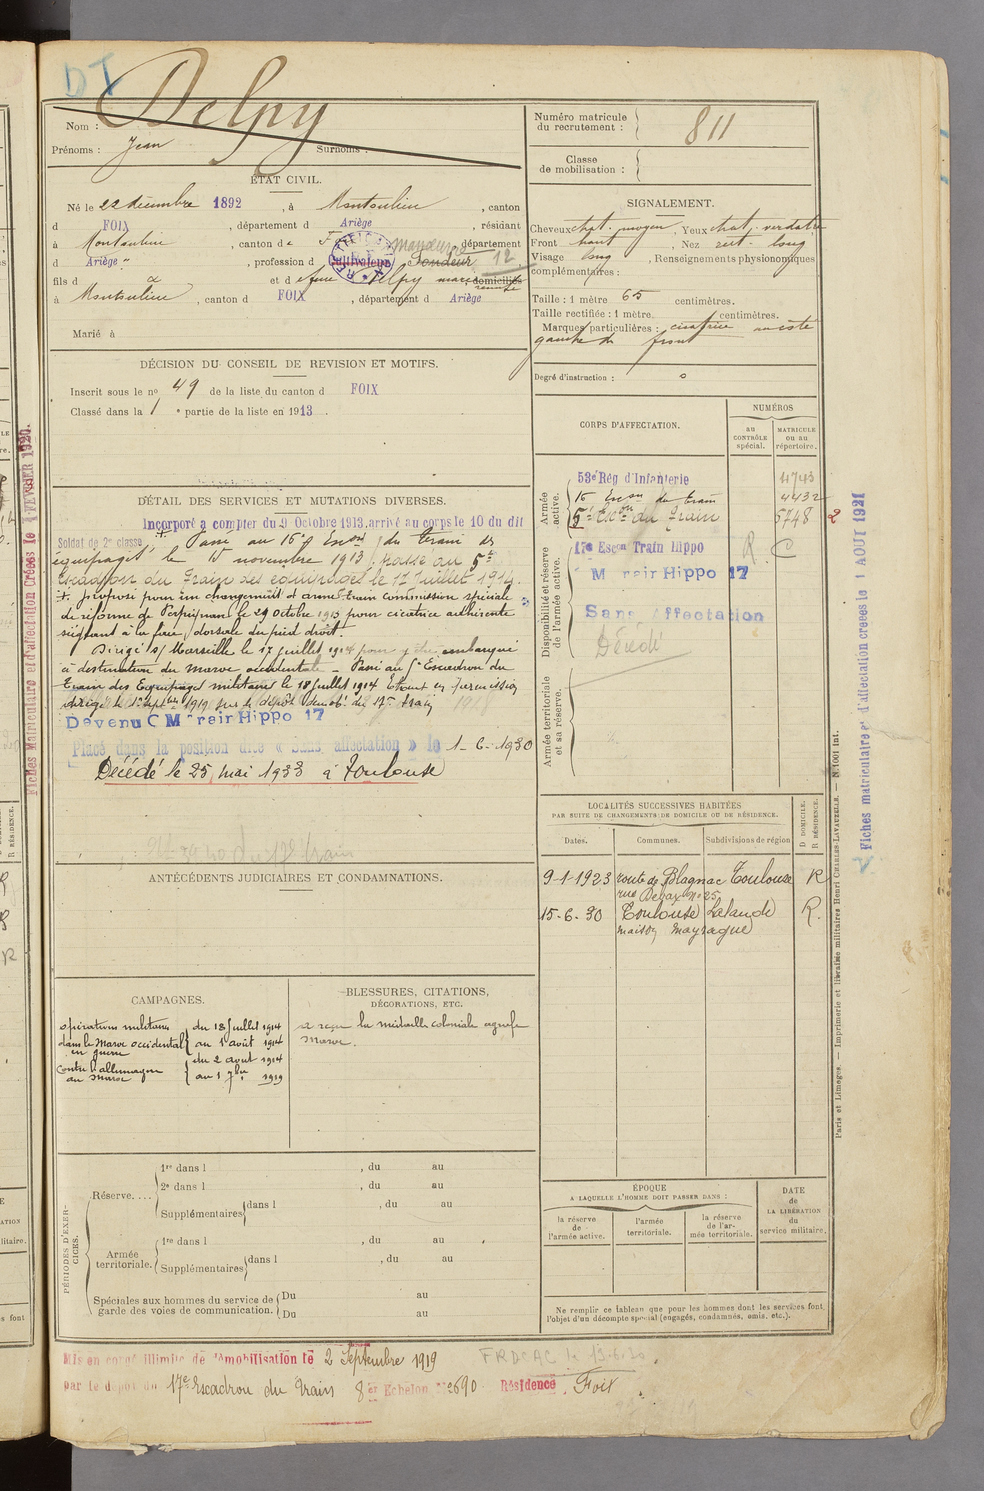 DI
Nom : Delpy
Prénoms : Jean Surnoms :
ÉTAT CIVIL.
Né le 22 décembre 1892, à Montoulieu, canton
d FOIX, département d Ariège, résidant
à Montoulieu, canton de F département
d Ariège, profession d Cultivateur Tondeur 12
RECTIFICATION
fils d et d Delpy domiciliés
à Montoulieu, canton d FOIX, département d Ariège
Marié à
DÉCISION DU CONSEIL DE REVISION ET MOTIFS.
Inscrit sous le nº 49 de la liste du canton d FOIX
Classé dans la 1e partie de la liste en 1913.
DÉTAIL DES SERVICES ET MUTATIONS DIVERSES.
Incorporé a compter du 9 Octobre 1913, arrivé au corps le 10 du dit
Soldat de 2e classe. Passé au 16e Escon du train des
équipages le 15 novembre 1913 passé au 5e
Escadron du Train des équipages le 17 Juillet 1914.
+. Proposé pour un changement d'arme train commission spéciale
de réforme de Perpignan le 29 octobre 1913 pour cicatrice adhérente
siégeant à la face dorsale du pied droit.
Dirigé s/ Marseille le 17 juillet 1914 pour y être embarqué
à destination du maroc occidental - Passé au Escadron du
Train des Equipages militaires le 18 juillet 1914 Etant en permission
dirigé le 1er Septbre 1919 sur le dépôt démob. du 17e Train
Devenu C M Train Hippo 17
Placé dans la position dite « Sans affectation » le 1-6-1930
Décédé le 25 mai 1933 à Toulouse
ANTÉCÉDENTS JUDICIAIRES ET CONDAMNATIONS.
CAMPAGNES.
opérations militaires du 18 Juillet 1914
dans le Maroc occidental au 1 août 1914
en guerre du 2 août 1914
contre l'allemagne
au Maroc au 1 7bre 1919
BLESSURES, CITATIONS,
DÉCORATIONS, ETC.
a reçu la médaille coloniale agrafe
Maroc.
PÉRIODES D'EXERCICES.
Réserve....
1re dans l , du au
2e dans l , du au
Supplémentaires dans l , du au
Armée
territoriale.
1re dans l , du au
Supplémentaires dans l , du au
Spéciales aux hommes du service de Du au
garde des voies de communication. Du au
Mis en congé illimité de démobilisation le 2 Septembre 1919
par le dépôt du 17e Escadron du Train 8e Echelon Nº 690 Résidence, Foix
Numéro matricule
du recrutement : 811
Classe
de mobilisation :
SIGNALEMENT.
Cheveux chat. moyen, Yeux chat. verdatre
Front haut, Nez rect. long
Visage long, Renseignements physionomiques
complémentaires :
Taille : 1 mètre 65 centimètres.
Taille rectifiée : 1 mètre centimètres.
Marques particulières : cicatrice au côté
gauche du front
Degré d'instruction :
CORPS D'AFFECTATION.
NUMÉROS
au
CONTRÔLE
spécial.
MATRICULE
ou au
répertoire.
Armée
active.
53e Rég d'Infanterie 4743
16 Escon du train 4432
5e Escon du Train 5748 2
Disponibilité et réserve
de l'armée active.
17e Escon Train Hippo R C
C M Train Hippo 17
Sans Affectation
Décédé
Armée territoriale
et sa réserve.
LOCALITÉS SUCCESSIVES HABITÉES
PAR SUITE DE CHANGEMENTS DE DOMICILE OU DE RÉSIDENCE.
Dates. Communes. Subdivisions de région
D DOMICILE.
R RÉSIDENCE.
9-1-1923 route de Blagnac Toulouse R
rue Nº 25
15-6-30 Toulouse Lalande R.
maison Mayrague
ÉPOQUE
A LAQUELLE L'HOMME DOIT PASSER DANS :
DATE
de
LA LIBÉRATION
du
service militaire.
la réserve
de
l'armée active.
l'armée
territoriale.
la réserve
de l'ar-
mée territoriale.
Ne remplir ce tableau que pour les hommes dont les services font
l'objet d'un décompte spécial (engagés, condamnés, omis, etc.).
Fiches Matriculaire et d'affectation créées le 1 FEVRIER 1920.
Fiches matriculaire et d'affectation créées le 1 AOUT 1921
Paris et Limoges. — Imprimerie et librairie militaires Henri CHARLES-LAVAUZELLE. — Nº 1001 int.